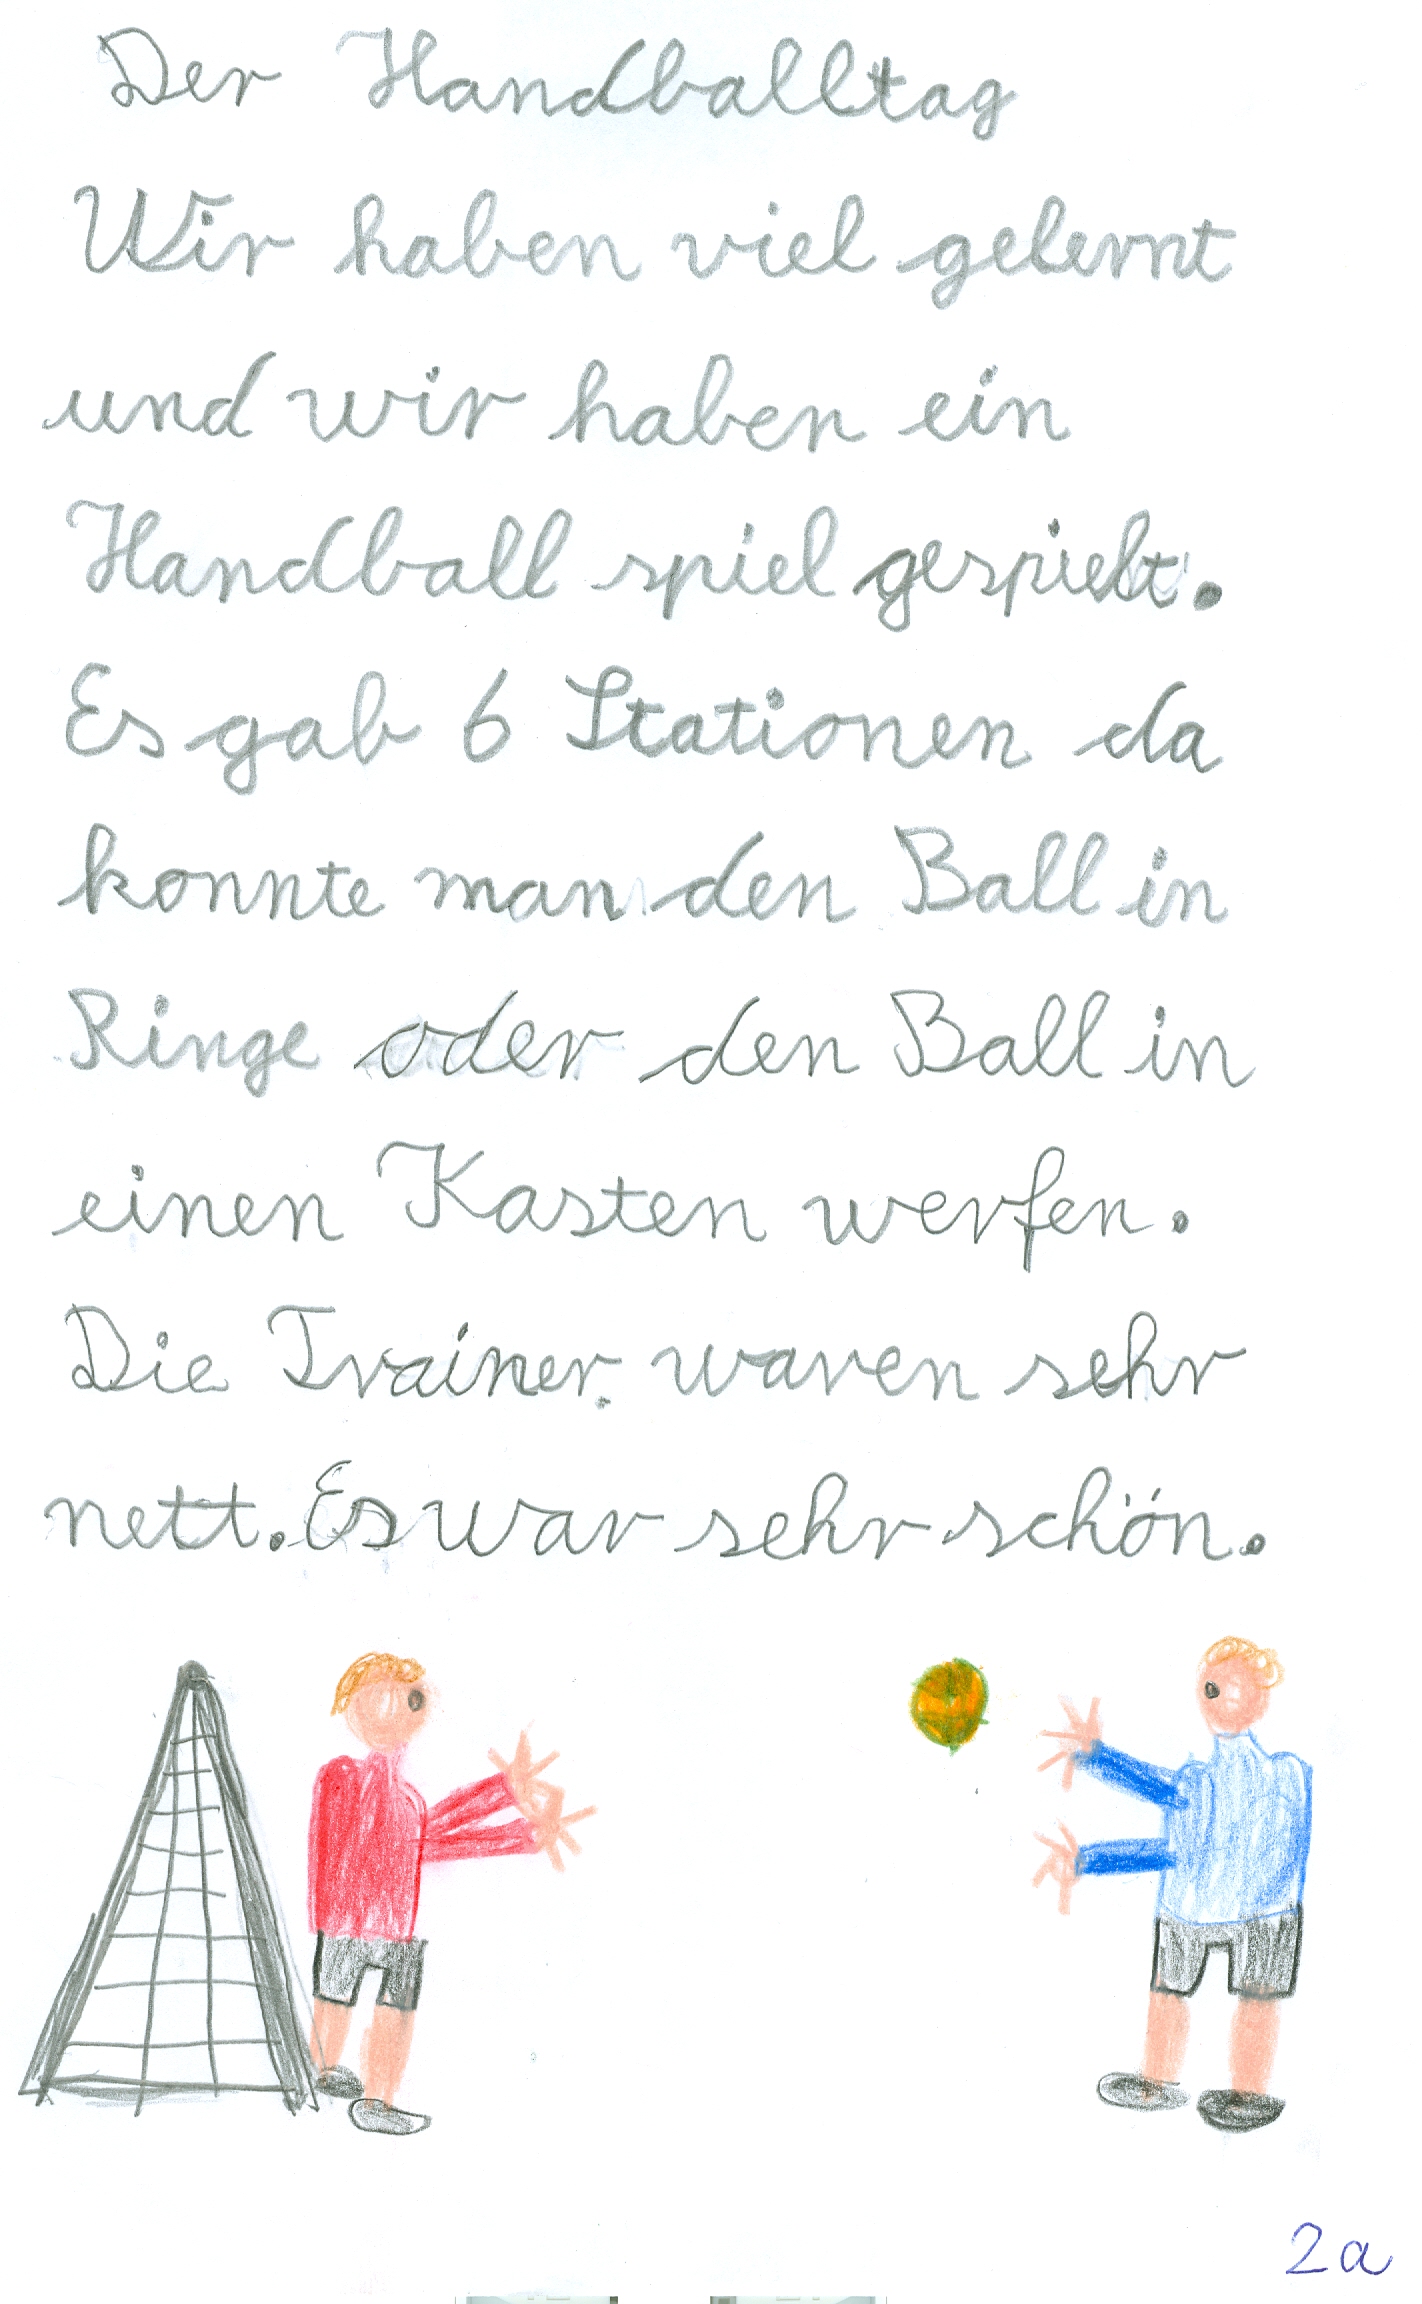 Der Handballtag
Wir haben viel gelernt
und wir haben ein
Handball spiel gespielt.
Es gab 6 Stationen da
konnte man den Ball in
Ringe oder den Ball in
einen Kasten werfen.
Die Trainer waren sehr
nett. Es war sehr schön.
2a